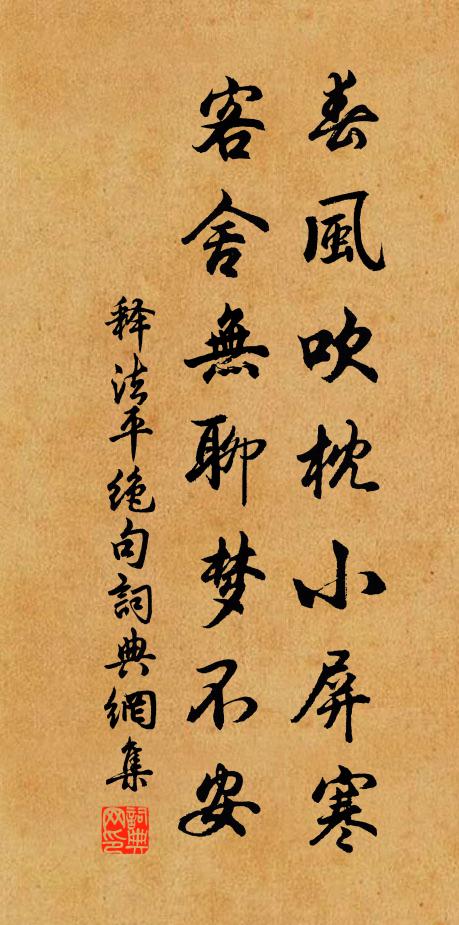 春風吹枕小屏寒
客舍無聊梦不安
释法平绝句詞典網集
詞典网印